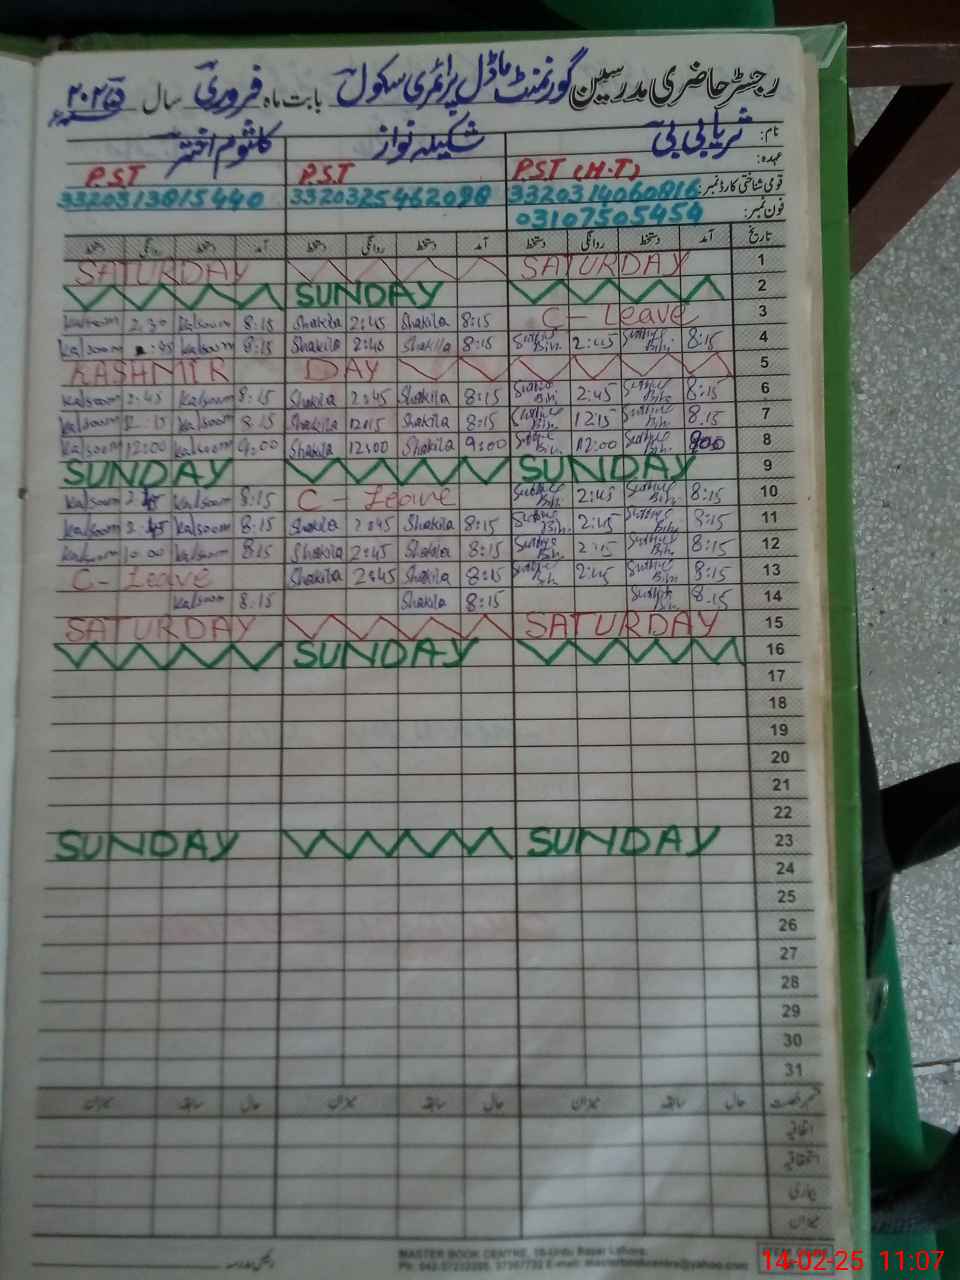 رجسٹر حاضری مدرسین گورنمنٹ ماڈل پرائمری سکول بابت ماہ فروری سال ۲۰۲۵
نام: ثریا بی بی شکیلہ نواز کلثوم اختر
عہدہ: P.S.T (H.T) P.S.T P.S.T
قومی شناختی کارڈ نمبر: 3320314060816 3320325462098 3320313815440
فون نمبر: 03107505454
تاریخ آمد دستخط روانگی دستخط آمد دستخط روانگی دستخط آمد دستخط روانگی دستخط
SATURDAY SATURDAY 1
SUNDAY 2
Kalsoom 2.30 Kalsoom 8:15 Shakila 2:45 Shakila 8:15 C - Leave 3
Kalsoom Kalsoom 8:15 Shakila 2:45 Shakila 8:15 2:45 8:15 4
KASHMIR DAY 5
Kalsoom 2:45 Kalsoom 8:15 Shakila 2:45 Shakila 8:15 2:45 8:15 6
Kalsoom 12:15 Kalsoom 8.15 Shakila 12:15 Shakila 8:15 12:15 8.15 7
Kalsoom 12:00 Kalsoom 9:00 Shakila 12:00 Shakila 9:00 12:00 9:00 8
SUNDAY SUNDAY 9
Kalsoom 2:45 Kalsoom 8:15 C - Leave 2:45 8:15 10
Kalsoom Kalsoom 8:15 Shakila 2:45 Shakila 8:15 2:45 8:15 11
Kalsoom 10:00 Kalsoom 8:15 Shakila 2:45 Shakila 8:15 8:15 12
C - Leave Shakila 2:45 Shakila 8:15 2:45 8:15 13
Kalsoom 8.15 Shakila 8:15 8.15 14
SATURDAY SATURDAY 15
SUNDAY 16
17
18
19
20
21
22
SUNDAY SUNDAY 23
24
25
26
27
28
29
30
31
حال سابقہ میزان حال سابقہ میزان حال سابقہ میزان
اتفاقیہ
استحقاقیہ
بیماری
میزان
MASTER BOOK CENTRE, Urdu Bazar Lahore.
14-02-25 11:07